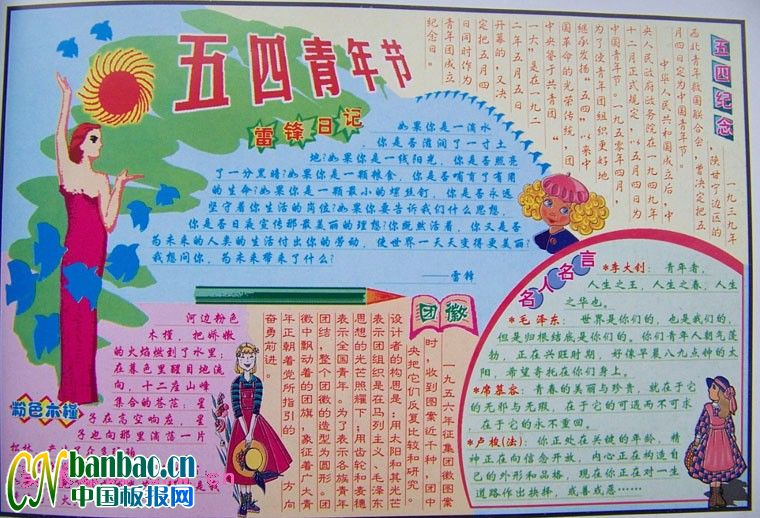 五四青年节
五四纪念
一九三九年
，陕甘宁边区的
西北青年救国联合会，曾决定把五
月四日定为中国青年节。
中华人民共和国成立后，中
央人民政府政务院在一九四九年
十二月正式规定，以五月四日为
中国青年节。一九五零年四月，
为了使青年团组织更好地
继承发扬“五四”以来中
国革命的光荣传统，团
中央鉴于共青团“
一大”是在一九二
二年五月五日
开幕的，又决
定把五月四
日同时作为
青年团成立
纪念日。
雷锋日记
如果你是一滴水
你是否滋润了一寸土
地?如果你是一线阳光，你是否照亮
了一分黑暗?如果你是一颗粮食，你是否哺育了有用
的生命?如果你是一颗最小的螺丝钉，你是否永远
坚守着你生活的岗位?如果你要告诉我们什么思想，
你是否日夜宣传那最美丽的理想?你既然活着，你又是否
为未来的人类的生活付出你的劳动，使世界一天天变得更美丽?
我想问你，为未来带来了什么?
——雷锋
粉色木槿
河边粉色
木槿，把娇嫩
的火焰燃到了水里；
在暮色里醒目地流
向，十二座山峰
集合的苍茫；星
子在高空响应，星
子也向那里滴落一片
团徽
一九五六年征集团徽图案
时，收到图案近千种，团中
央把它们反复比较和研究。
设计者的构思是：用太阳和其光芒
表示团组织是在马列主义、毛泽东
思想的光芒照耀下；用齿轮和麦穗
表示全国青年。为了表示各族青年
团结，整个团徽的造型为圆形。团
徽中飘动着的团旗，象征着广大青
年正朝着党所指引的 方向
奋勇前进。
名人名言
*李大钊：青年者，
人生之王，人生之春，人生
之华也。
*毛泽东：世界是你们的，也是我们的，
但是归根结底是你们的。你们青年人朝气蓬
勃，正在兴旺时期，好像早晨八九点钟的太
阳，希望寄托在你们身上。
*席慕容：青春的美丽与珍贵，就在于它
的无邪与无瑕，在于它的可遇而不可求
，在于它的永不重回。
*卢梭(法)：你正处在关键的年龄，精
神正在向信念开放，内心正在构造自
己的外形和品格，现在你正在对一生
道路作出抉择，或善或恶……
CN banbao.cn
中国板报网